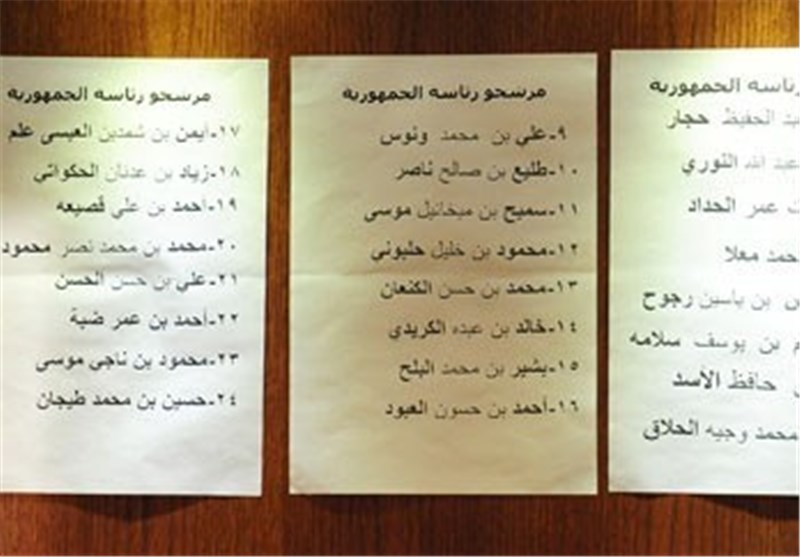 رئاسة الجمهورية
عبد الحفيظ حجار
عبد الله النوري
عمر الحداد
أحمد معلا
بن ياسين رجوح
بن يوسف سلامه
حافظ الأسد
محمد وجيه الحلاق
مرشحو رئاسة الجمهورية
٩-علي بن محمد ونوس
١٠-طليع بن صالح ناصر
١١-سميح بن ميخائيل موسى
١٢-محمود بن خليل حلبوني
١٣-محمد بن حسن الكنعان
١٤-خالد بن عبده الكريدي
١٥-بشير بن محمد البلح
١٦-أحمد بن حسون العبود
مرشحو رئاسة الجمهورية
١٧-أيمن بن شمدين العيسى علم
١٨-زياد بن عدنان الحكواتي
١٩-أحمد بن علي قصيعه
٢٠-محمد بن محمد نصر محمود
٢١-علي بن حسن الحسن
٢٢-أحمد بن عمر ضبة
٢٣-محمود بن ناجي موسى
٢٤-حسين بن محمد طيجان